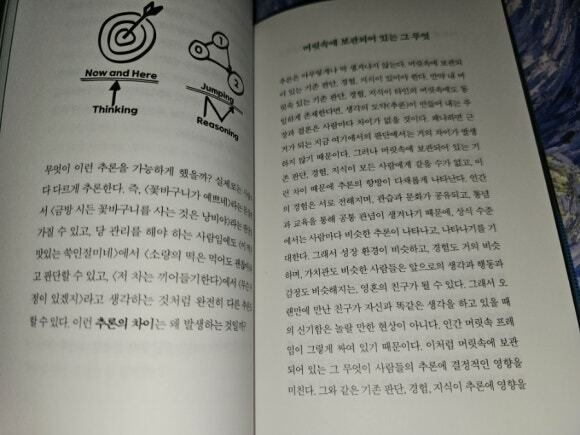 Now and Here
Thinking
1
2
Jumping
Reasoning
무엇이 이런 추론을 가능하게 했을까? 실제로는
다 다르게 추론한다. 즉, 〈꽃바구니가 예쁘네〉라는
서 〈금방 시든 꽃바구니를 사는 것은 낭비야〉라는
가질 수 있고, 당 관리를 해야 하는 사람임에도
맛있는 쑥인절미네〉에서 〈소량의 떡은 먹어도 괜찮
고 판단할 수 있고, 〈저 차는 끼어들기한다〉에서 〈무슨
정이 있겠지〉라고 생각하는 것처럼 완전히 다른
할 수 있다. 이런 추론의 차이는 왜 발생하는 것일까?
머릿속에 보관되어 있는 그 무엇
추론은 아무렇게나 막 생겨나지 않는다. 머릿속에 보관되
어 있는 기존 판단, 경험, 지식이 있어야 한다. 만약 내 머
릿속 있는 기존 판단, 경험, 지식이 타인의 머릿속에도 동
일하게 존재한다면, 생각의 도약(추론)이 만들어 내는 주
장과 결론은 사람마다 차이가 없을 것이다. 왜냐하면 근
거가 되는 지금 여기에서의 판단에서는 거의 차이가 발생
하지 않기 때문이다. 그러나 머릿속에 보관되어 있는 기
존 판단, 경험, 지식이 모든 사람에게 같을 수가 없고, 이
런 차이 때문에 추론의 향방이 다채롭게 나타난다. 인간
의 경험은 서로 전해지며, 관습과 문화가 공유되고, 통념
과 교육을 통해 공통 관념이 생겨나기 때문에, 상식 수준
에서는 사람마다 비슷한 추론이 나타나고, 나타나기를 기
대한다. 그래서 성장 환경이 비슷하고, 경험도 거의 비슷
하며, 가치관도 비슷한 사람들은 앞으로의 생각과 행동과
감정도 비슷해지는, 영혼의 친구가 될 수 있다. 그래서 오
랜만에 만난 친구가 자신과 똑같은 생각을 하고 있을 때
의 신기함은 놀랄 만한 현상이 아니다. 인간 머릿속 프레
임이 그렇게 짜여 있기 때문이다. 이처럼 머릿속에 보관
되어 있는 그 무엇이 사람들의 추론에 결정적인 영향을
미친다. 그와 같은 기존 판단, 경험, 지식이 추론에 영향을